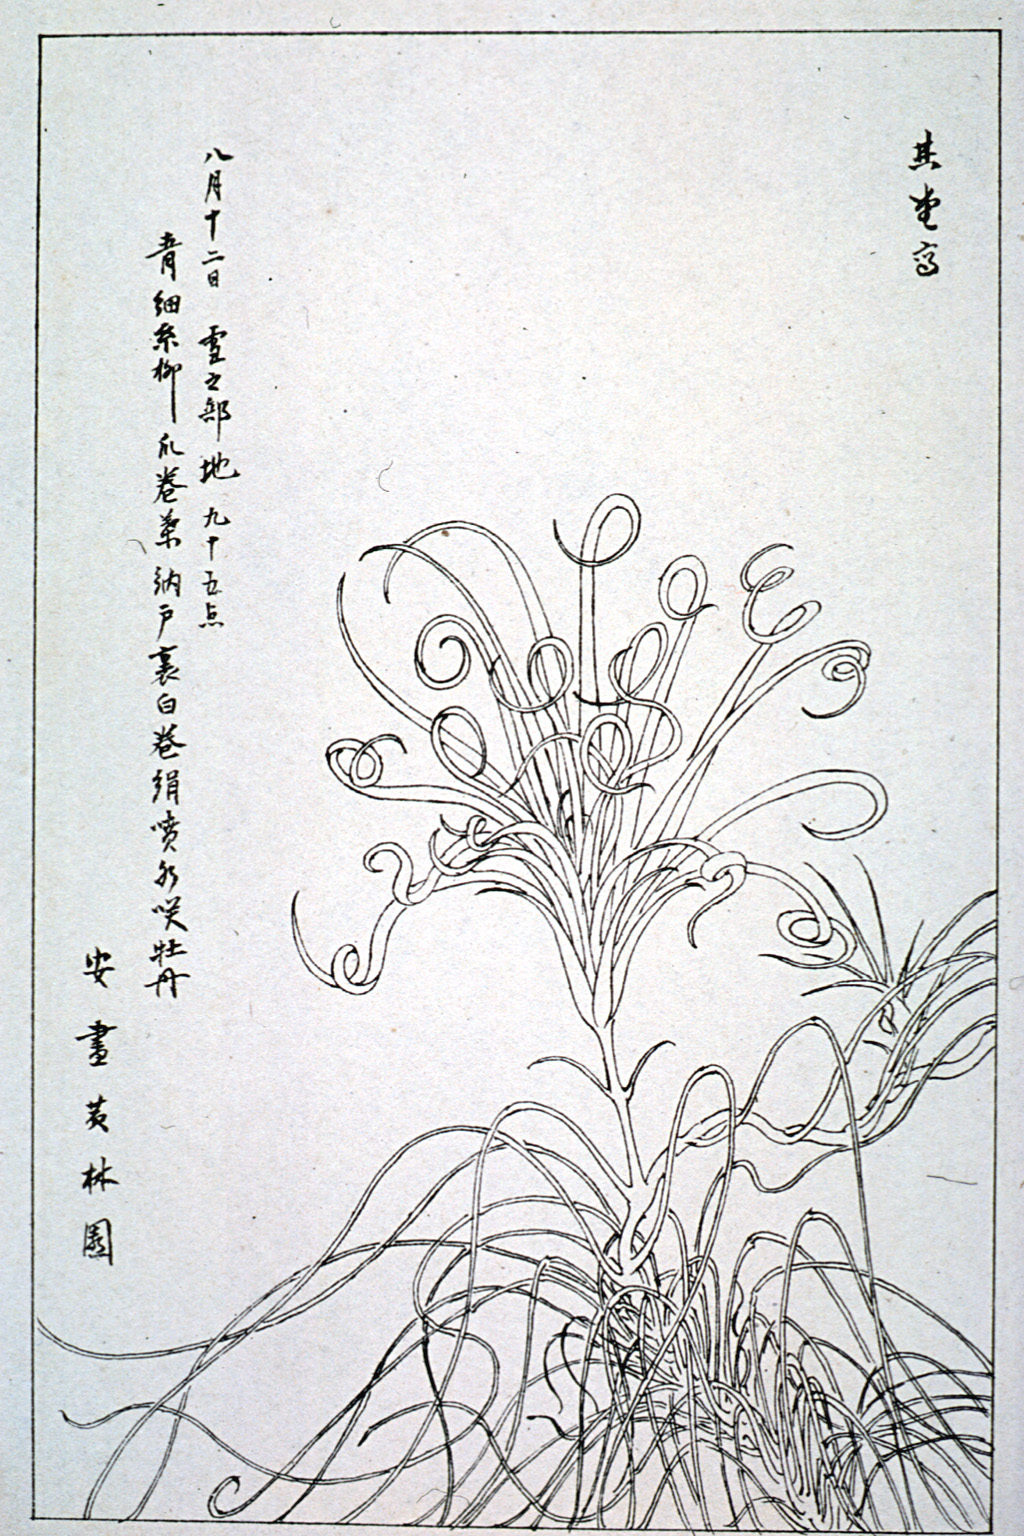 其堂写
八月十二日 雪之部 地 九十五点
青細糸柳爪巻葉納戸裏白巻絹噴水咲牡丹
安 画 黄林園